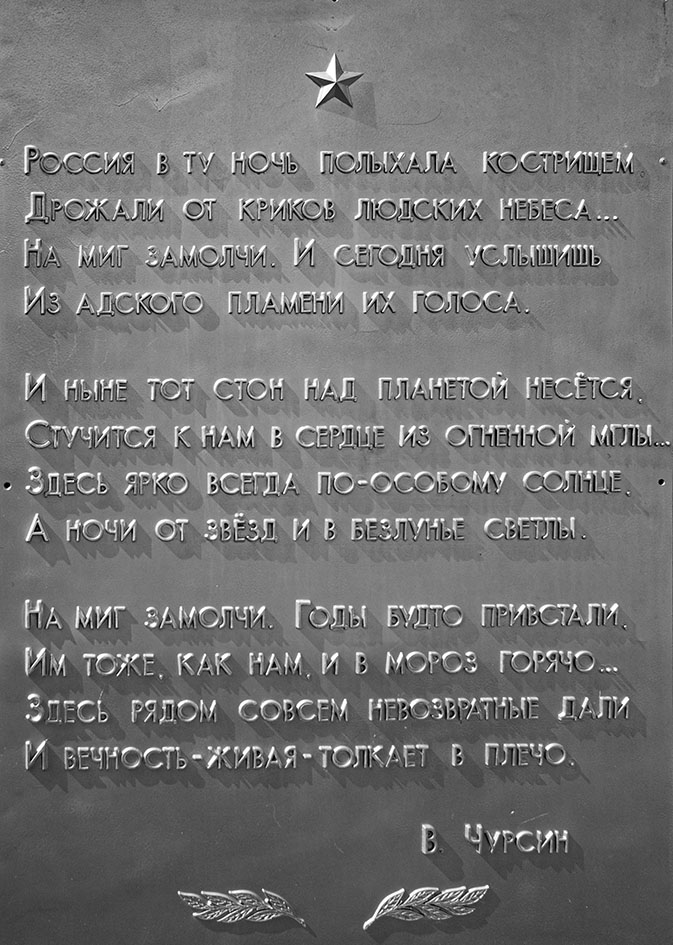 Россия в ту ночь полыхала кострищем,
Дрожали от криков людских небеса...
На миг замолчи. И сегодня услышишь
Из адского пламени их голоса.
И ныне тот стон над планетой несётся,
Стучится к нам в сердце из огненной мглы...
Здесь ярко всегда по-особому солнце,
А ночи от звёзд и в безлунье светлы.
На миг замолчи. Годы будто привстали,
Им тоже, как нам, и в мороз горячо...
Здесь рядом совсем невозвратные дали
И вечность-живая-толкает в плечо.
В. Чурсин